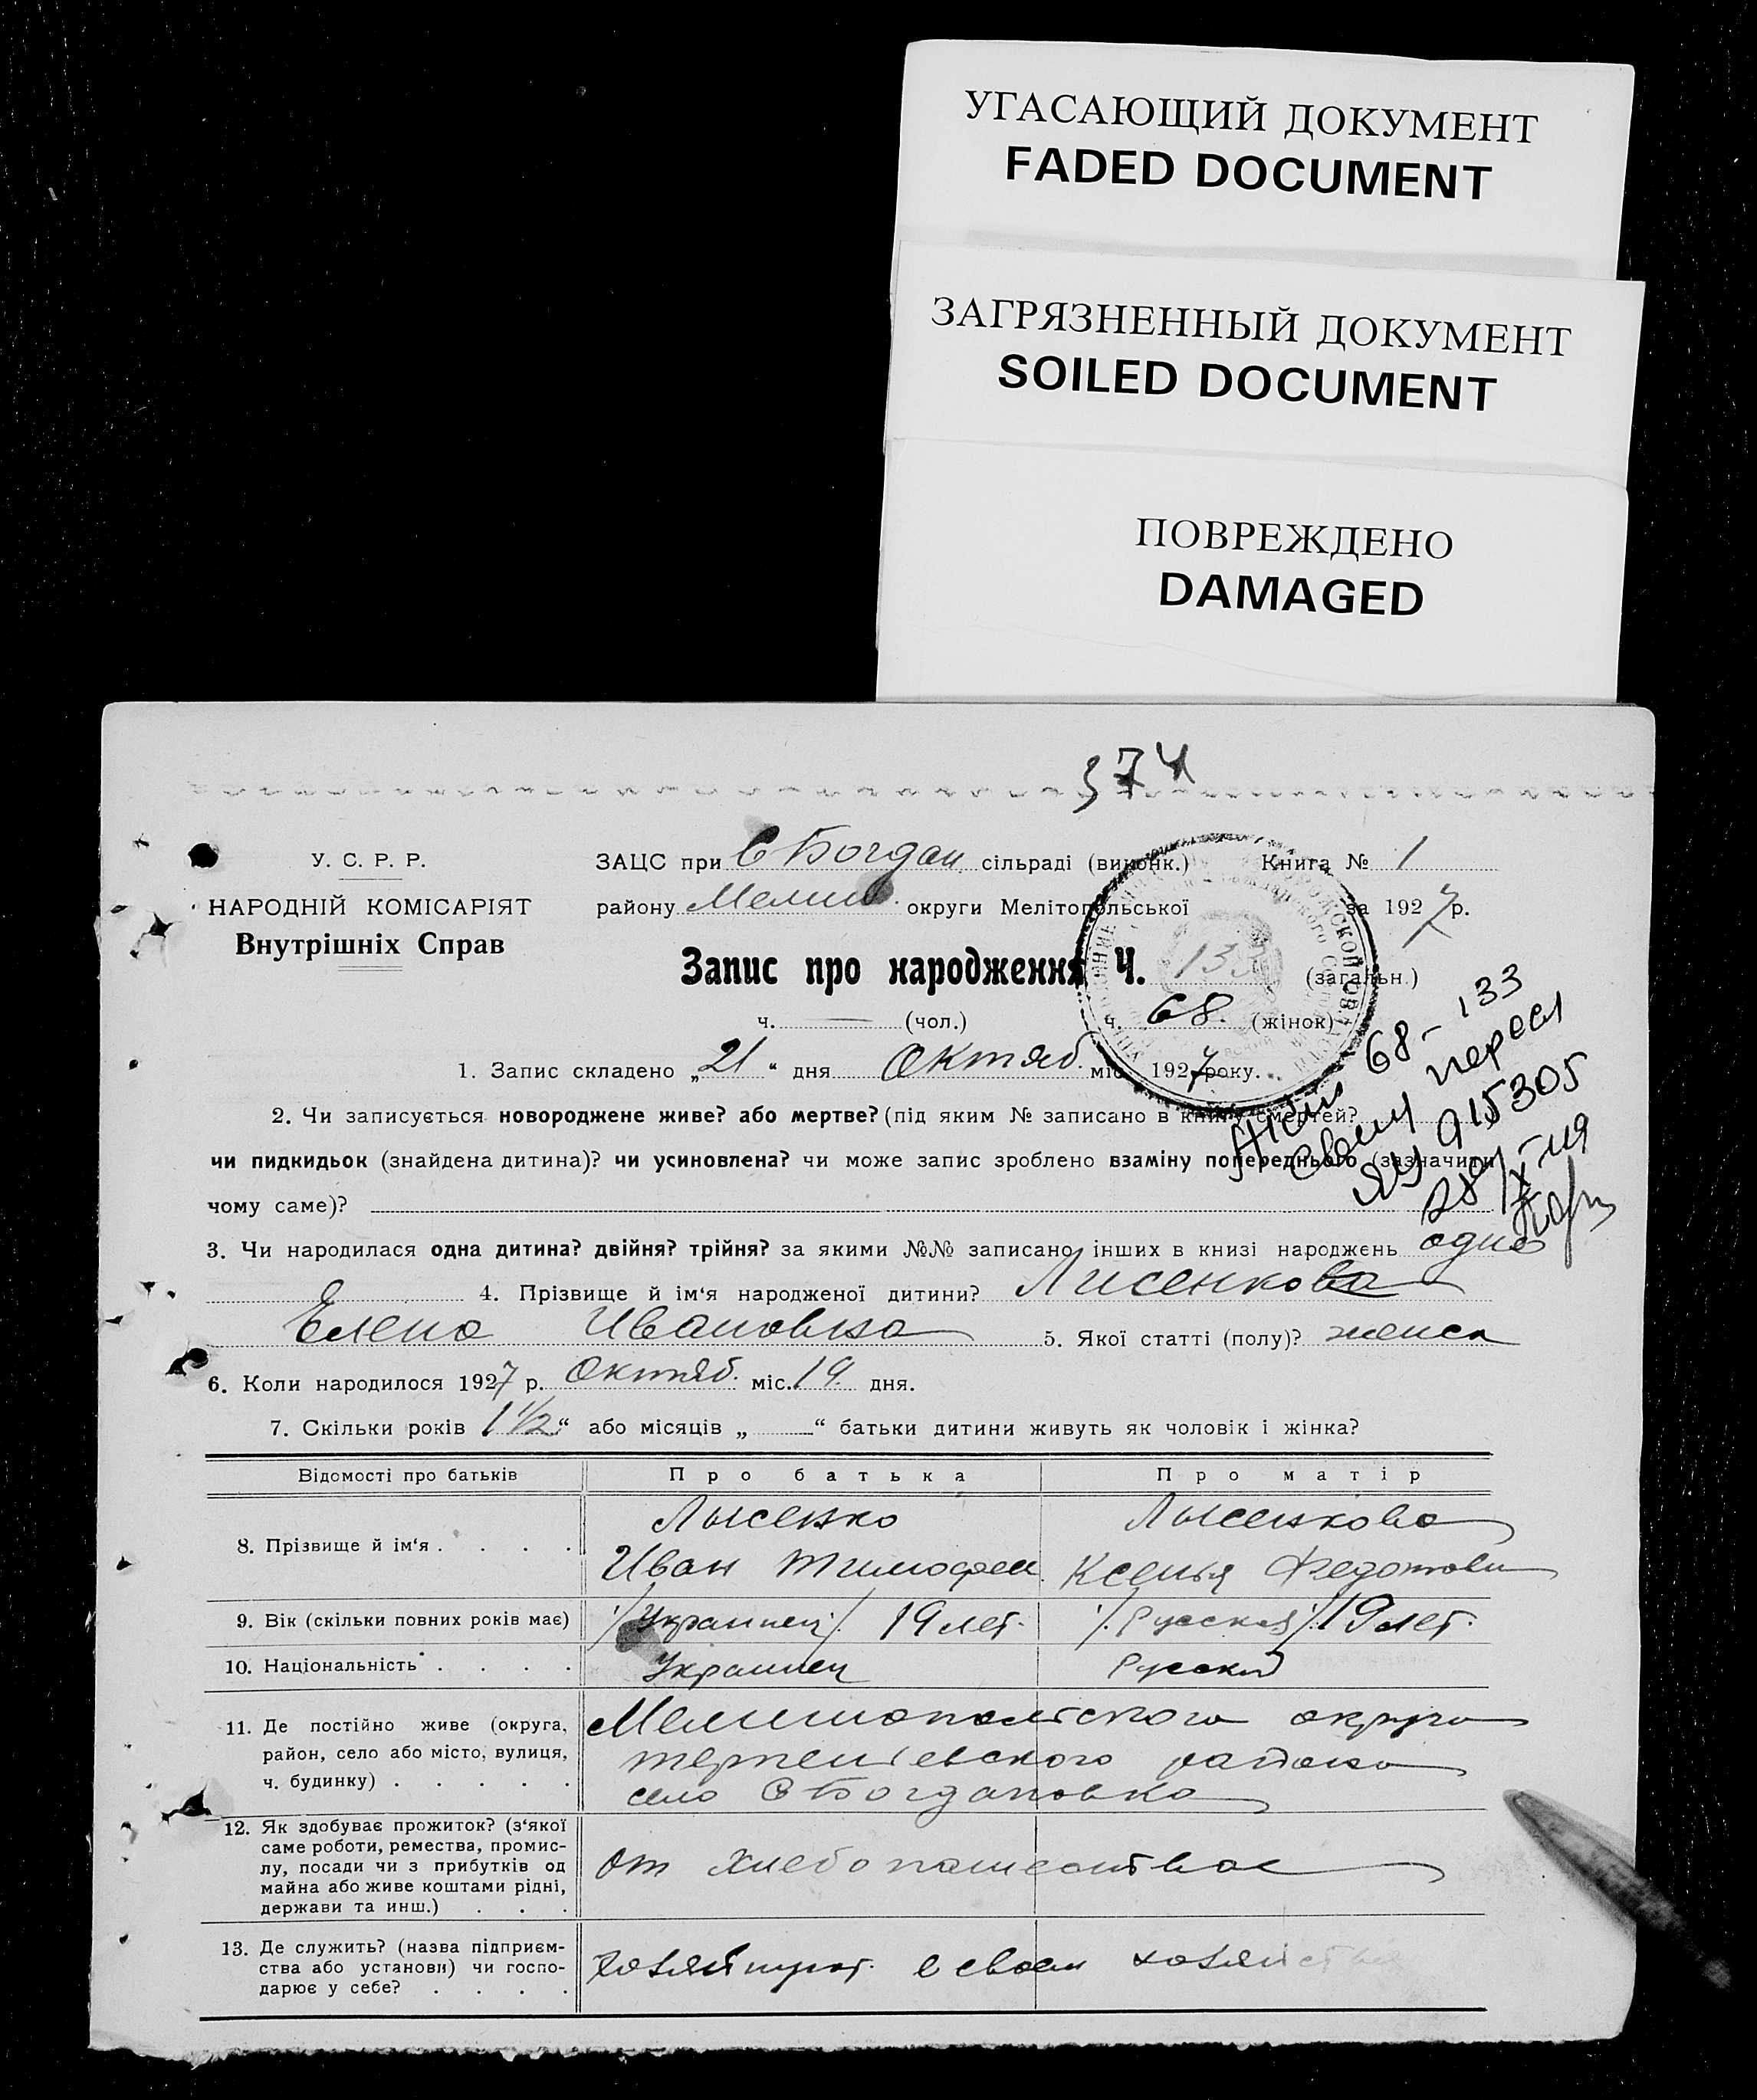 УГАСАЮЩИЙ ДОКУМЕНТ
FADED DOCUMENT
ЗАГРЯЗНЕННЫЙ ДОКУМЕНТ
SOILED DOCUMENT
ПОВРЕЖДЕНО
DAMAGED
374
У. С. Р. Р.
НАРОДНІЙ КОМІСАРІЯТ
Внутрішніх Справ
ЗАЦС при С Богдан. сільраді (виконк.) Книга № 1
району Мелит. округи Мелітопольської за 1927 р.
Запис про народження Ч. 133 (загальн.)
ч. — (чол.) ч. 68. (жінок)
68 - 133
1. Запис складено „21“ дня Октяб. міс. 1927 року.
915305
2. Чи записується новороджене живе? або мертве? (під яким № записано в книгу смертей?
чи пидкидьок (знайдена дитина)? чи усиновлена? чи може запис зроблено взаміну попереднього (зазначити
чому саме)?
3. Чи народилася одна дитина? двійня? трійня? за якими №№ записано інших в книзі народжень одна
4. Прізвище й ім‘я народженої дитини? Лисенкова
Елена Ивановна 5. Якої статті (полу)? женск
6. Коли народилося 1927 р. Октяб. міс. 19 дня.
7. Скільки років 1 1/2“ або місяців „ “ батьки дитини живуть як чоловік і жінка?
Відомості про батьків Про батька Про матір
8. Прізвище й ім‘я . . . . Лысенко Лысенкова
Иван Тимофеи. Ксенья Федотовн
9. Вік (скільки повних років має) /Украинец/ 19 лет. /Русская/ 19 лет.
10. Національність . . . . Украинец Русский
11. Де постійно живе (округа, район, село або місто, вулиця, ч. будинку) . . . . .
Мелитопольского округа
терпениевского района
село С Богдановка
12. Як здобуває прожиток? (з‘якої
саме роботи, ремества, промис-
лу, посади чи з прибутків од
майна або живе коштами рідні,
держави та инш.) . . .
от хлебопашества
13. Де служить? (назва підприєм-
ства або установи) чи госпо-
дарює у себе? . . . .
хозяйнуют. в своем хозяйстве